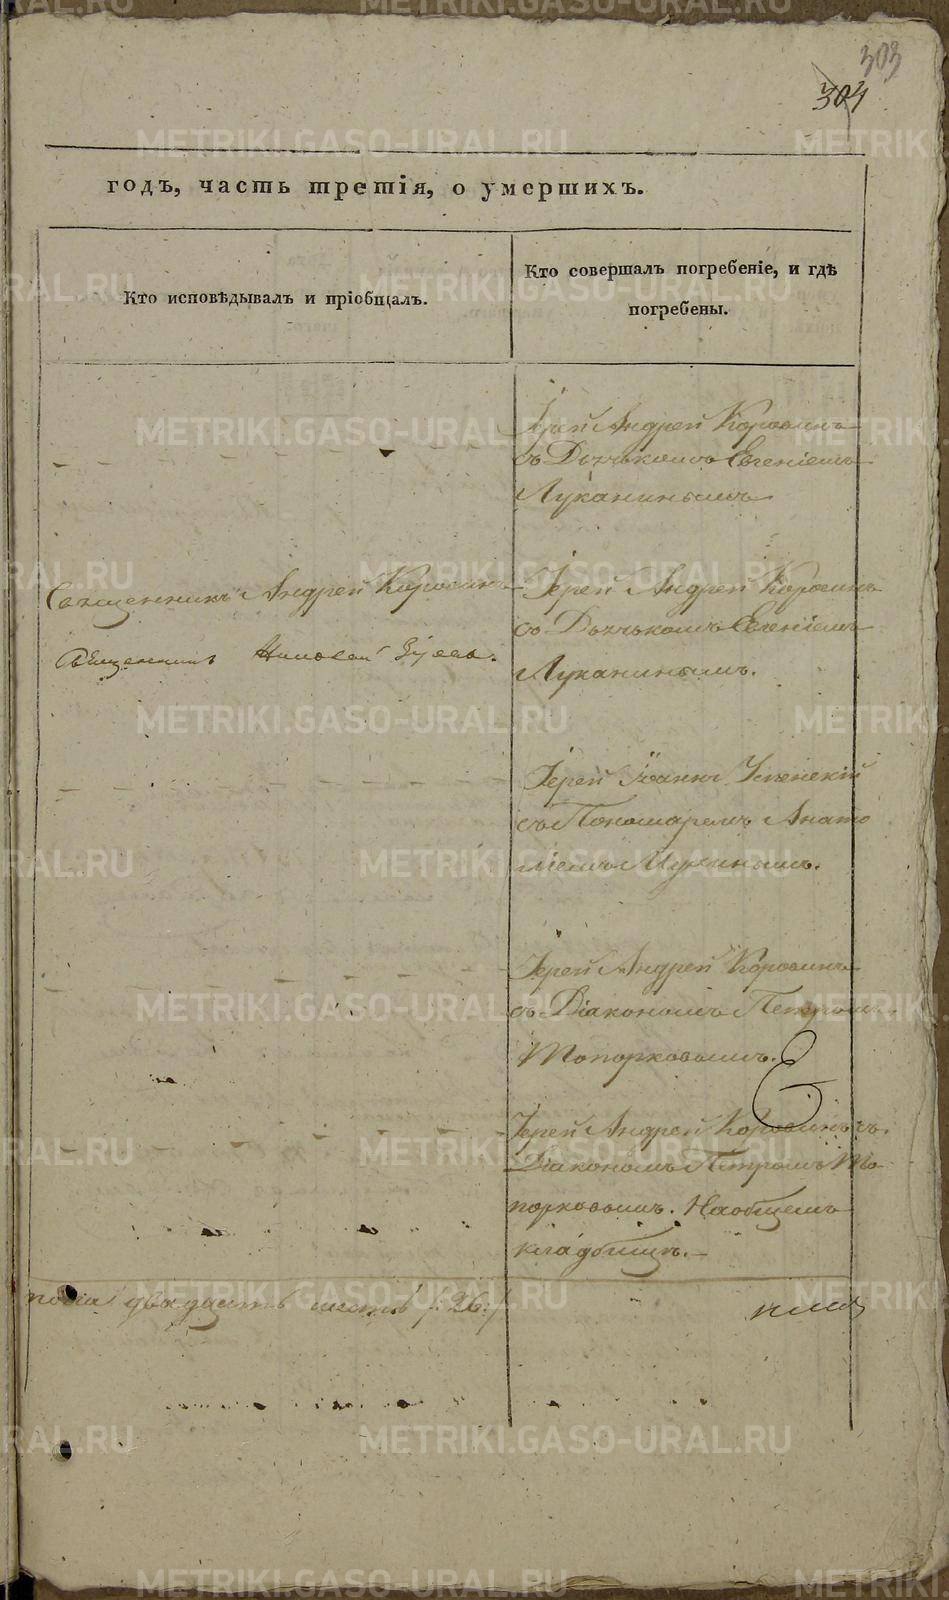 303
304
годъ, часть третія, о умершихъ.
Кто исповѣдывалъ и пріобщалъ.
Кто совершалъ погребеніе, и гдѣ
погребены.
Іерей Андрей Коровинъ
съ Дьячькомъ Евгеніемъ
Луканинымъ
Священникъ Андрей Коровинъ
Іерей Андрей Коровинъ
съ Дьячькомъ Евгеніемъ
Священникъ Николай
Луканинымъ.
Іерей Іоаннъ Успенскій
съ Пономаремъ Анато
ліемъ
Іерей Андрей Коровинъ
съ Діакономъ Петромъ
Топорковымъ.
Іерей Андрей Коровинъ съ
Діакономъ Петромъ То
порковымъ. На общемъ
кладбищѣ.
двадцать шесть /:26:/
METRIKI.GASO-URAL.RU